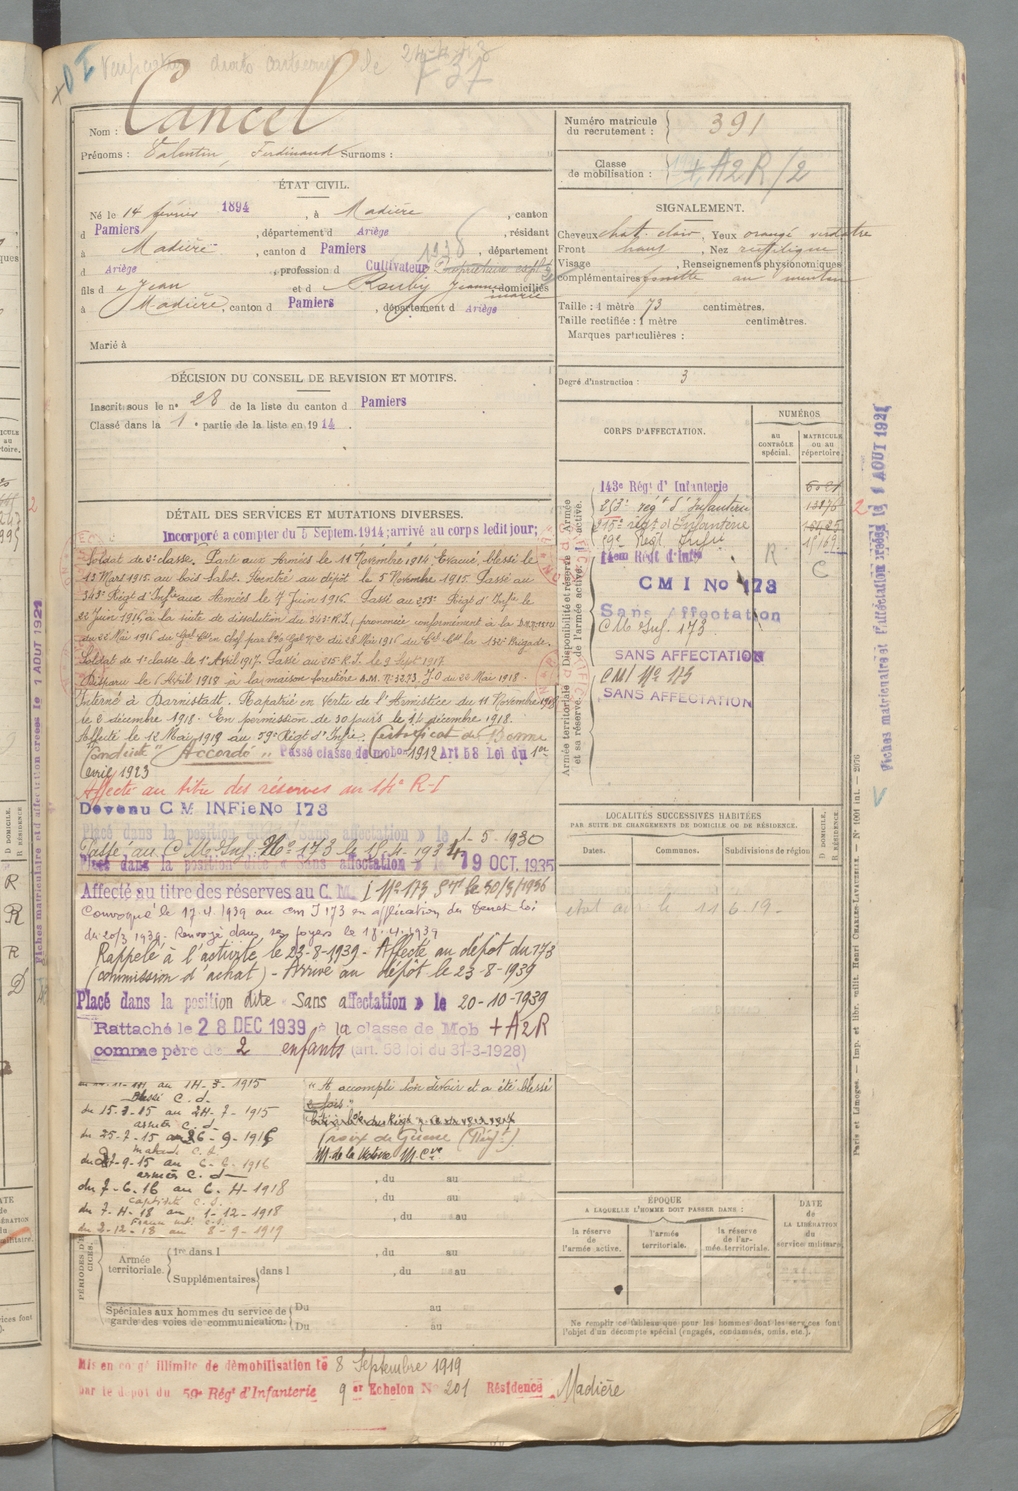 Cancel
Nom :
Prénoms : Valentin, Ferdinand Surnoms :
ÉTAT CIVIL.
Né le 14 février 1894, à Madière, canton
d Pamiers, département d Ariège, résidant
à Madière, canton d Pamiers, département
d Ariège, profession d Cultivateur
fils d e Jean et d Rouby Jeanne marie, domiciliés
à Madière, canton d Pamiers, département d Ariège
Marié à
DÉCISION DU CONSEIL DE REVISION ET MOTIFS.
Inscrit sous le n° 28 de la liste du canton d Pamiers
Classé dans la 1e partie de la liste en 1914.
DÉTAIL DES SERVICES ET MUTATIONS DIVERSES.
Incorporé a compter du 5 Septem. 1914; arrivé au corps ledit jour;
Soldat de 2e classe. Parti aux Armées le 11 Novembre 1914. Evacué, blessé le
15 Mars 1915 au bois Sabot. Rentré au dépôt le 5 Novembre 1915. Passé au
343e Régt d'Infie aux Armées le 7 Juin 1916. Passé au 253e Régt d'Infie le
Juin 1916, à la suite de dissolution du 343e R.I, prononcée conformément à la
du 26 Mai 1916 du Gal Ctn en chef par du 28 Mai 1916 du la 132e Brigade.
Soldat de 1e classe le 1er Avril 1917. Passé au 215e R.I. le 9 Sept 1917
Disparu le 6 Avril 1918 à la maison forestière D.M. N° 3293 JO du 22 Mai 1918.
Interné à Darmstadt. Rapatrié en Vertu de l'Armistice du 11 Novembre 1918
le 2 décembre 1918. En permission de 30 jours le 14 décembre 1918.
Affecté le 12 Mars 1919 au 59e Régt d'Infie. Certificat de Bonne
Conduite "Accordé" Passé classe de mobon 1912 Art 58 Loi du 1er
Avril 1923
Affecté au titre des réserves au 14e R-I
Devenu C M INFie No 173
Placé dans la position dite « Sans affectation » le 1-5-1930
Passé au C Mo Inf. No 173 le 15.4.1934
Placé dans la position dite « sans affectation » le 19 OCT. 1935
Affecté au titre des réserves au C. M. I No 173 le 30/3/1936
Convoqué le 17.4.1939 au cm I 173 en application du Decret loi
du 20/3 1939. Renvoyé dans ses foyers le 18.4.1939
Rappelé à l'activité le 23-8-1939 - Affecté au dépôt du 173
(commission d'achat) - Arrivé au dépôt le 23-8-1939
Placé dans la position dite « Sans affectation » le 20-10-1939
Rattaché le 28 DEC 1939 à la classe de Mob + A2R
comme père de 2 enfants (art. 58 loi du 31-3-1928)
au 14-3-1915
Blessé C. d.
du 15-3-15 au 24-7-1915
armée C. d.
du 25-7-15 au 26-9-1915
malade C. d.
du 27-9-15 au 6-6-1916
armées C. d
du 7-6-16 au 6-4-1918
Captivité C. S.
du 7-4-18 au 1-12-1918
du 2-12-18 au 8-9-1919
"A accompli son devoir et a été blessé
2 fois."
Croix de Guerre (Régt)
, du au
, du au
, du au
Armée territoriale.
1re dans l , du au
Supplémentaires dans l , du au
Spéciales aux hommes du service de garde des voies de communication.
Du au
Du au
Mis en congé illimité de démobilisation le 8 Septembre 1919
par le dépôt du 59e Régt d'Infanterie 9e Echelon No 201 Résidence Madière
Numéro matricule du recrutement : 391
Classe de mobilisation : + A2R/2
SIGNALEMENT.
Cheveux chat. clair, Yeux orangé verdâtre
Front haut, Nez rectiligne
Visage , Renseignements physionomiques
complémentaires fossette au menton
Taille : 1 mètre 73 centimètres.
Taille rectifiée : 1 mètre centimètres.
Marques particulières :
Degré d'instruction : 3
CORPS D'AFFECTATION.
NUMÉROS
au CONTRÔLE spécial.
MATRICULE ou au répertoire.
Armée active.
Disponibilité et réserve de l'armée active.
Armée territoriale et sa réserve.
143e Régt d'Infanterie
253e régt d'Infanterie
215e régt d'Infanterie
59e Régt Infrie
14em Régt d'Infie R
C M I No 173 C
Sans Affectation
C Mo Inf. 173
SANS AFFECTATION
CMI No 173
SANS AFFECTATION
LOCALITÉS SUCCESSIVES HABITÉES
PAR SUITE DE CHANGEMENTS DE DOMICILE OU DE RÉSIDENCE.
Dates.
Communes.
Subdivisions de région
D DOMICILE.
R RÉSIDENCE
ÉPOQUE
A LAQUELLE L'HOMME DOIT PASSER DANS :
la réserve de l'armée active.
l'armée territoriale.
la réserve de l'armée territoriale.
DATE de LA LIBÉRATION du service militaire.
Ne remplir ce tableau que pour les hommes dont les services font
l'objet d'un décompte spécial (engagés, condamnés, omis, etc.).
Fiches matriculaire et d'affectation créées le 1 AOUT 1921
Paris et Limoges. — Imp. et libr. milit. Henri CHARLES-LAVAUZELLE. — N° 1001 int. — 2076